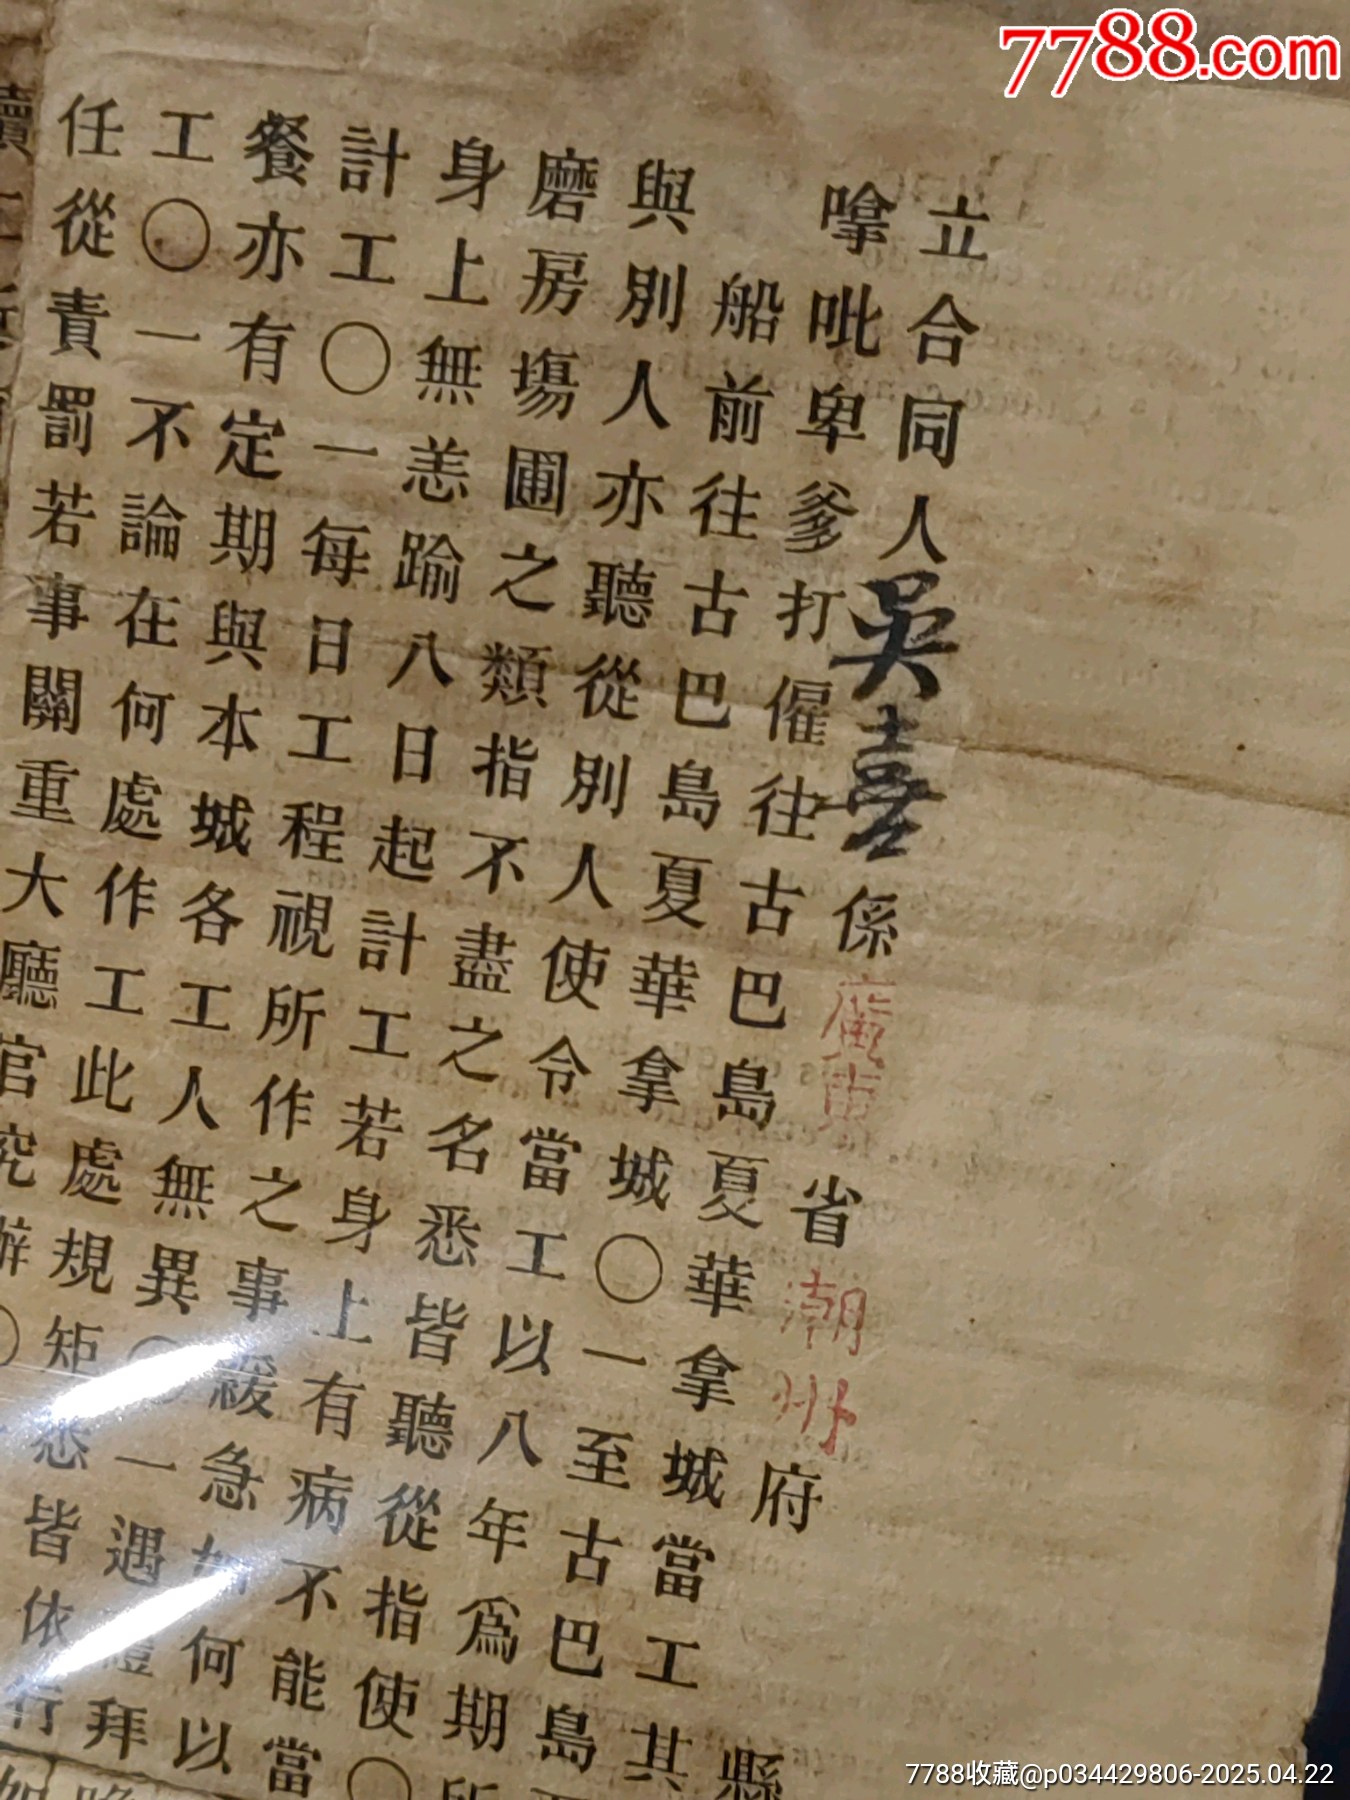 7788.com
立合同人吳喜係廣東省潮州府縣
嗱吡卑爹打僱往古巴島夏華拿城當工其
船前往古巴島夏華拿城〇一至古巴島
與別人亦聽從別人使令當工以八年為期所
磨房塲圃之類指不盡之名悉皆聽從指使〇
身上無恙踰八日起計工若身上有病不能當
計工〇一每日工程視所作之事緩急如何以
餐亦有定期與本城各工人無異〇一遇禮拜
工〇一不論在何處作工此處規矩悉皆依行
任從責罰若事關重大廳官究辦〇
7788收藏@p034429806-2025.04.22